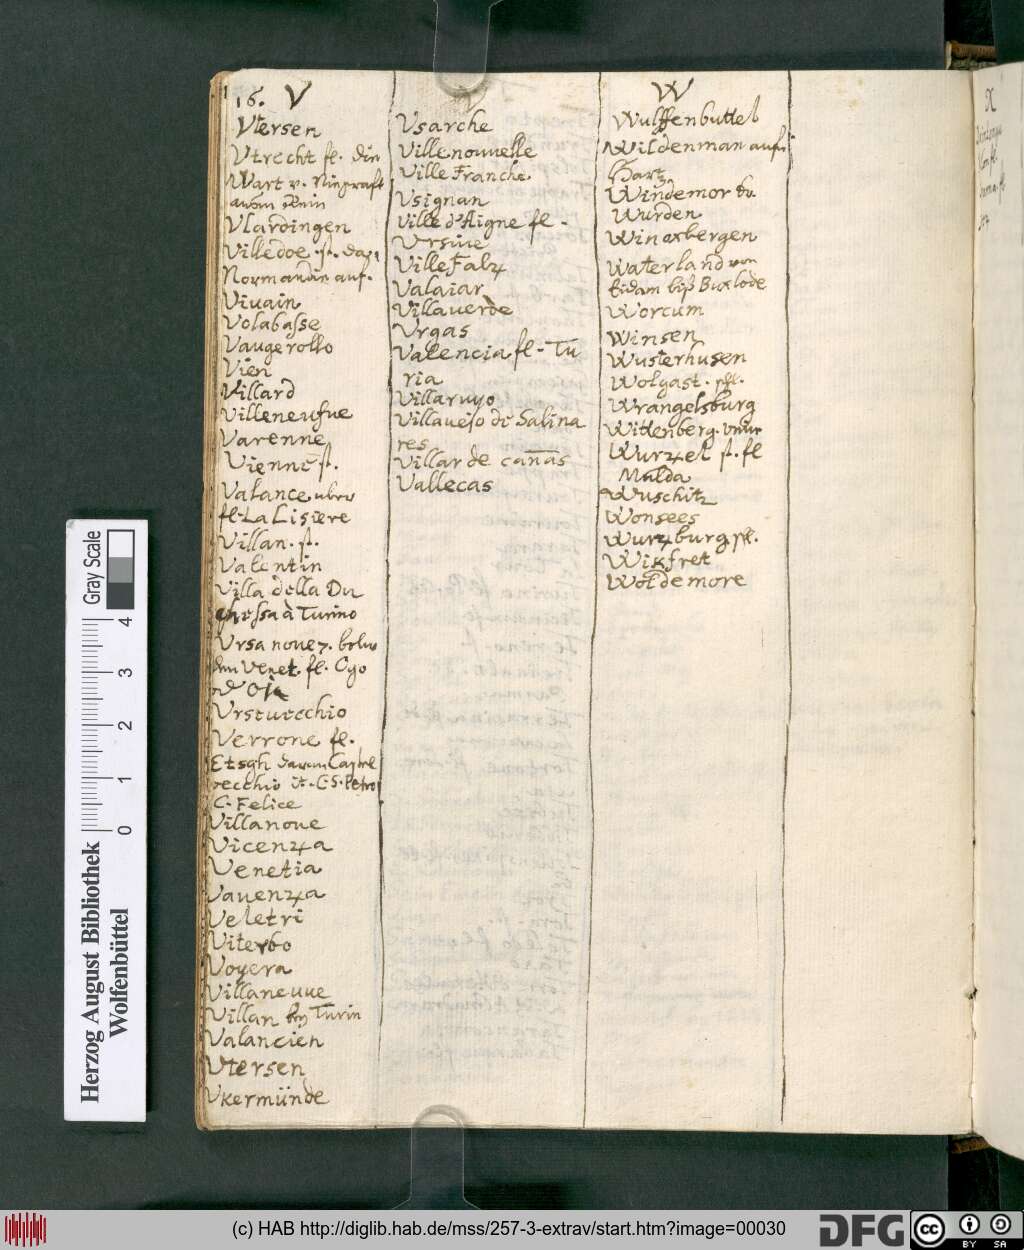 16. V
Vtersen
Vtrecht fl. die
Wart v.
Vlardingen
Villedoe. st. da
Normandie auf.
Viuain
Volabasse
Vaugerollo
Vien
Villard
Villeneufue
Varenne
Vienne st.
Valance uber
fl. La Lisiere
Villan. st.
Valentin
Villa della Du
chessa à Turino
Vrsa noue
den Venet. fl. Cyo
Vrsturcchio
Verrone fl.
Etsch darum Castel
vecchio It. C. S. Petro
C. Felice
Villanoue
Vicenza
Venetia
Vauenza
Veletri
Viterbo
Voyera
Villaneuue
Villan bey Turin
Valancien
Vtersen
Vkermünde
V
Vsarche
Villenouuelle
Ville Franche
Vsignan
Ville d'Aigne fl -
Vrsine
Ville Falz
Valaiar
Villauerde
Vrgas
Valencia fl - Tu
ria
Villaruyo
Villauejo de Salina
res
Villar de cañas
Vallecas
W
Wulffenbuttel
Wildenman aufn
Hartz
Windemor bey
Wurden
Winoxbergen
Waterland von
Eidam biß Buxlode
Worcum
Winsen
Wusterhusen
Wolgast. fl.
Wrangelsburg
Wittenberg. Vniur
Wurzel st. fl
Malda
Wuschitz
Wonsees
Wurzburg fl.
Wikfret
Woldemore
X
Gray Scale
0 1 2 3 4
Herzog August Bibliothek
Wolfenbüttel
(c) HAB http://diglib.hab.de/mss/257-3-extrav/start.htm?image=00030
DFG
cc
BY SA